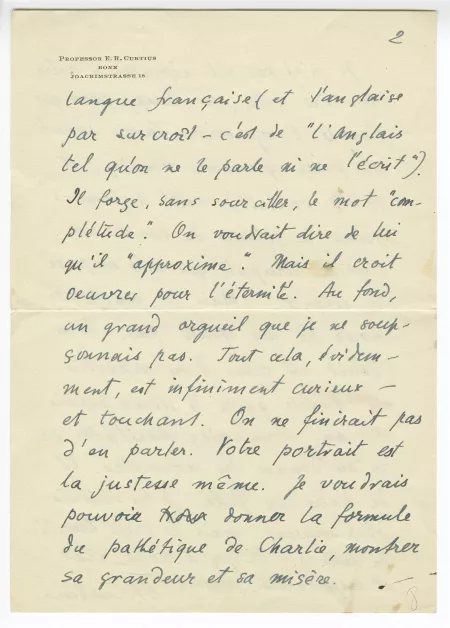 2
PROFESSOR E. R. CURTIUS
BONN
JOACHIMSTRASSE 18
langue française (et l'anglaise
par surcroît - c'est de "l'anglais
tel qu'on ne le parle ni ne l'écrit").
Il forge, sans sourciller, le mot "com-
plétude". On voudrait dire de lui
qu'il "approxime". Mais il croit
oeuvrer pour l'éternité. Au fond,
un grand orgueil que je ne soup-
çonnais pas. Tout cela, évidem-
ment, est infiniment curieux -
et touchant. On ne finirait pas
d'en parler. Votre portrait est
la justesse même. Je voudrais
pouvoir donner la formule
du pathétique de Charlie, montrer
sa grandeur et sa misère.
8